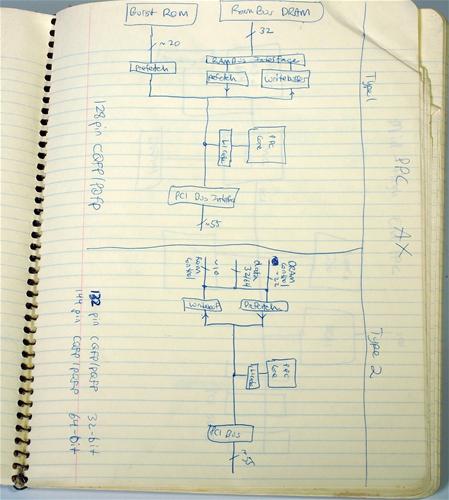 PPC AX
Type 1
Burst ROM
RamBus DRAM
~20
32
RamBus Interface
prefetch
prefetch
writebuffer
PPC
core
PCI Bus Interface
~55
128 pin CQFP/PQFP
Type 2
DRAM
control
~22
data
32/64
~10
ROM
control
Prefetch
PPC
core
PCI Bus
~55
132 pin CQFP/PQFP 32-bit
144 pin CQFP/PQFP 64-bit